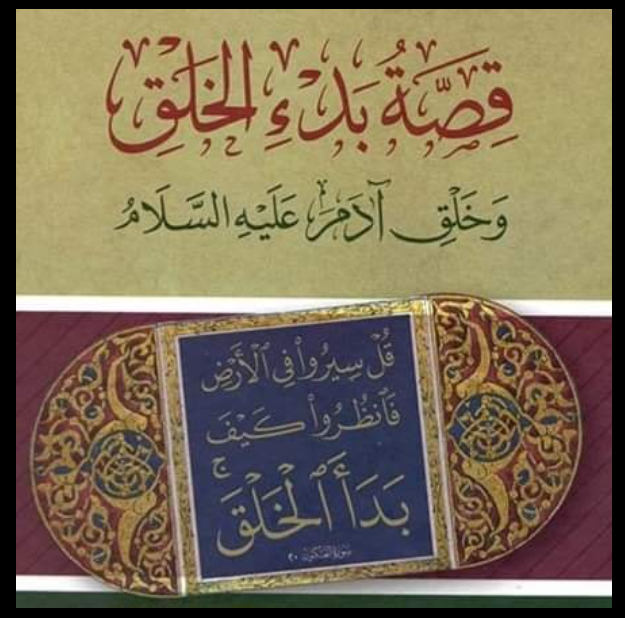 قِصَّةُ بَدْءِ الخَلْقِ
وَخَلْقِ آدَمَ عَلَيْهِ السَّلَامُ
قُلْ سِيرُوا۟ فِى ٱلْأَرْضِ
فَٱنظُرُوا۟ كَيْفَ
بَدَأَ ٱلْخَلْقَ ۚ
سورة العنكبوت ٢٠